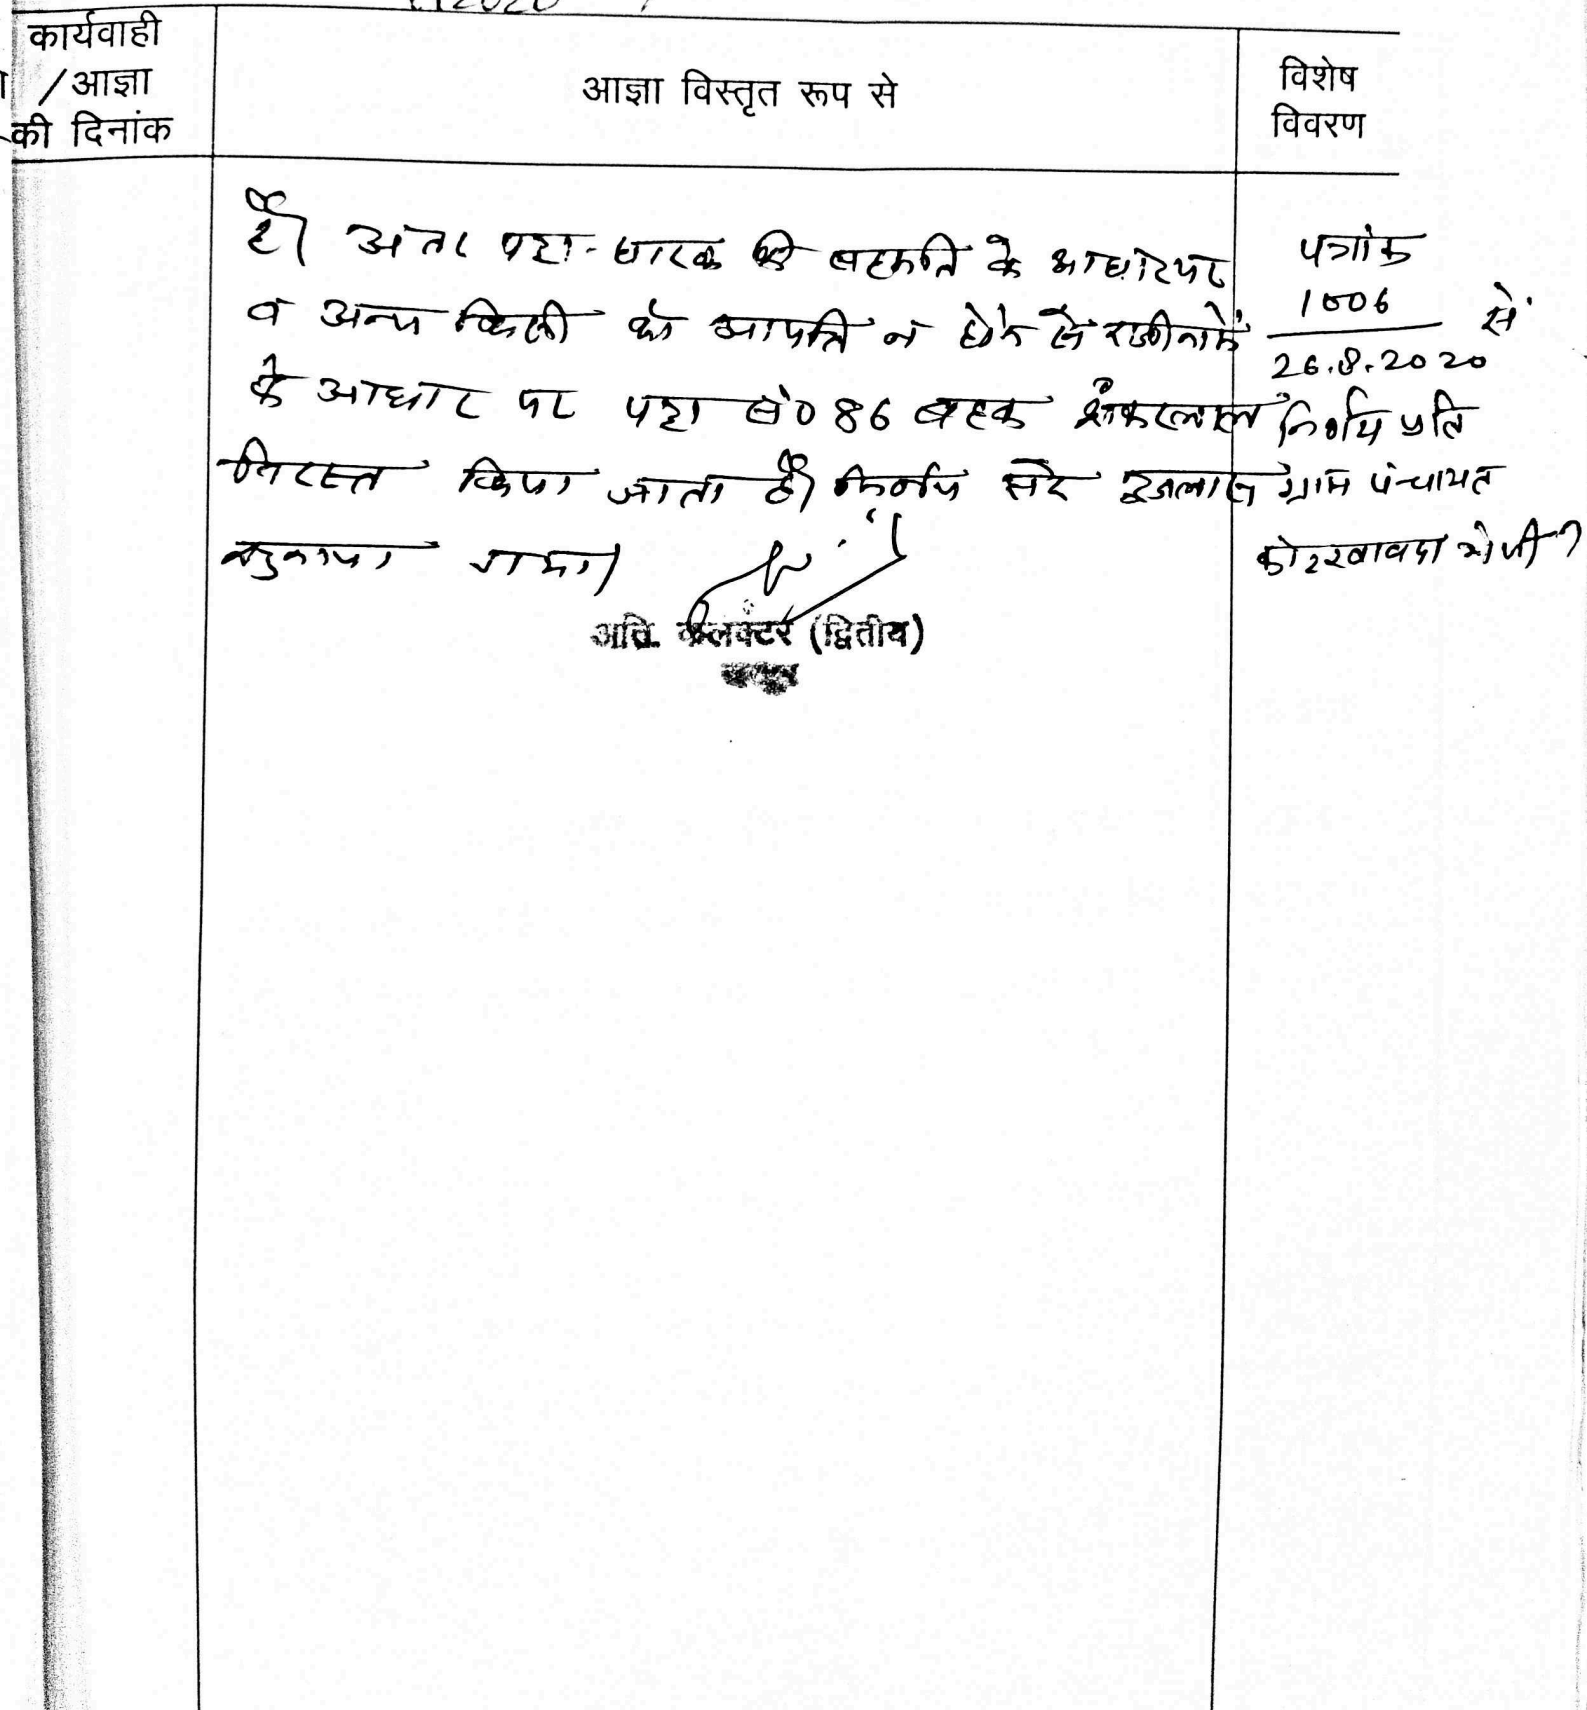 2020
कार्यवाही
/आज्ञा
की दिनांक
आज्ञा विस्तृत रूप से
विशेष
विवरण
है। अतः पट्टा-धारक की सहमति के आधार पर
व अन्य किसी को आपत्ति न होने से राजीनामें
के आधार पर पट्टा सं० 86 बहक शंकरलाल
निरस्त किया जाता है। निर्णय सरे इजलास
सुनाया गया।
अति. कलक्टर (द्वितीय)
पत्रांक
1006
26.8.2020 से
निर्णय प्रति
ग्राम पंचायत
कोटखावदा भेजी